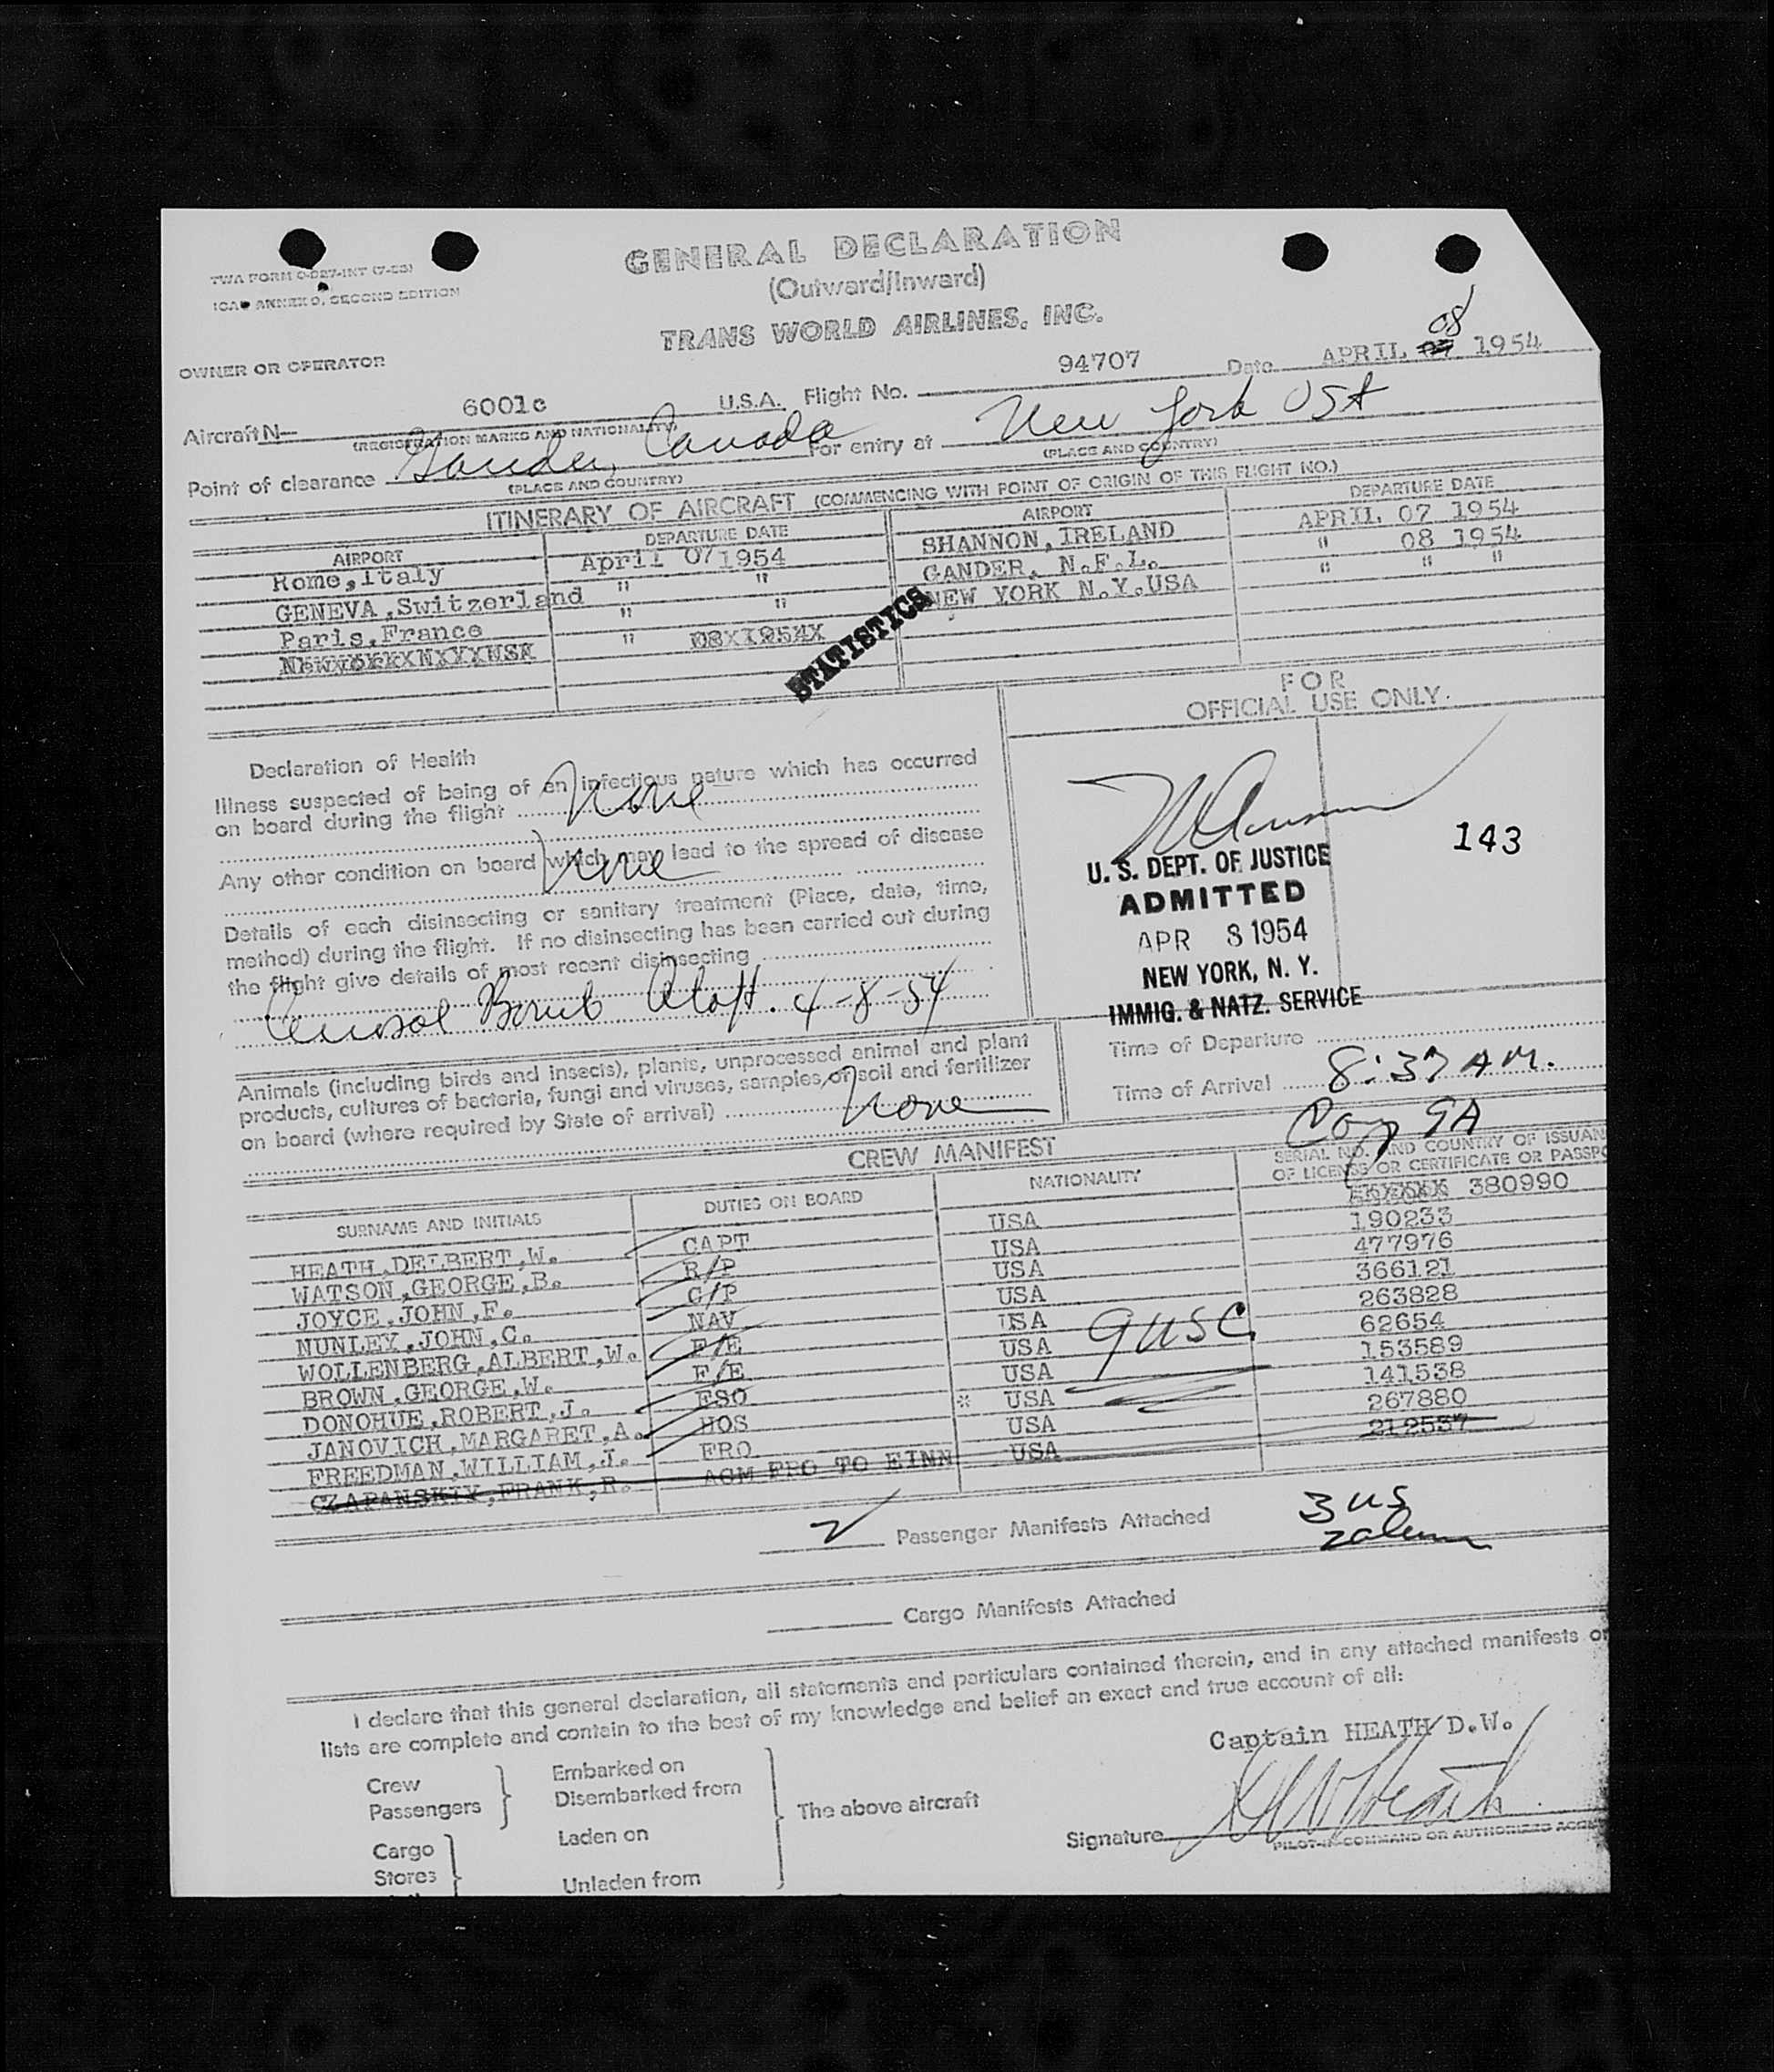 GENERAL DECLARATION
(Outward/Inward)
TRANS WORLD AIRLINES, INC.
TWA FORM
ICAO ANNEX 9, SECOND EDITION
OWNER OR OPERATOR
Aircraft N— 6001c U.S.A. Flight No. 94707 Date APRIL 07 08 1954
(REGISTRATION MARKS AND NATIONALITY)
Point of clearance Gander, Canada For entry at New York USA
(PLACE AND COUNTRY) (PLACE AND COUNTRY)
ITINERARY OF AIRCRAFT (COMMENCING WITH POINT OF ORIGIN OF THIS FLIGHT NO.)
AIRPORT DEPARTURE DATE AIRPORT DEPARTURE DATE
Rome,Italy April 07 1954 SHANNON,IRELAND APRIL 07 1954
GENEVA,Switzerland " " GANDER, N.F.L. " 08 1954
Paris,France " " NEW YORK N.Y.USA " " "
" 08X1954X
STATISTICS
FOR
OFFICIAL USE ONLY.
Declaration of Health
Illness suspected of being of an infectious nature which has occurred
on board during the flight None
Any other condition on board which may lead to the spread of disease
None
Details of each disinsecting or sanitary treatment (Place, date, time,
method) during the flight. If no disinsecting has been carried out during
the flight give details of most recent disinsecting
Aerosol Bomb Aloft. 4-8-54
143
U. S. DEPT. OF JUSTICE
ADMITTED
APR 8 1954
NEW YORK, N. Y.
IMMIG. & NATZ. SERVICE
Time of Departure
Time of Arrival 8:37 AM.
Animals (including birds and insects), plants, unprocessed animal and plant
products, cultures of bacteria, fungi and viruses, samples of soil and fertilizer
on board (where required by State of arrival) None
CREW MANIFEST
SURNAME AND INITIALS DUTIES ON BOARD NATIONALITY SERIAL NO. AND COUNTRY OF ISSUAN
OF LICENSE OR CERTIFICATE OR PASSPO
HEATH,DELBERT,W. CAPT USA 380990
WATSON,GEORGE,B. R/P USA 190233
JOYCE,JOHN,F. C/P USA 477976
NUNLEY,JOHN,C. NAV USA 366121
WOLLENBERG,ALBERT,W. F/E USA 263828
BROWN,GEORGE,W. F/E USA 62654
DONOHUE,ROBERT,J. FSO USA 153589
JANOVICH,MARGARET,A. HOS * USA 141538
FREEDMAN,WILLIAM,J. FRO USA 267880
CZAPANSKIY,FRANK,R. ACM FRO TO EINN USA 212537
9 USC
2 Passenger Manifests Attached
3 US
Cargo Manifests Attached
I declare that this general declaration, all statements and particulars contained therein, and in any attached manifests or
lists are complete and contain to the best of my knowledge and belief an exact and true account of all:
Captain HEATH D.W.
Crew
Passengers
Embarked on
Disembarked from
Cargo
Stores
Laden on
Unladen from
The above aircraft
Signature DW Heath
PILOT-IN-COMMAND OR AUTHORIZED AGENT